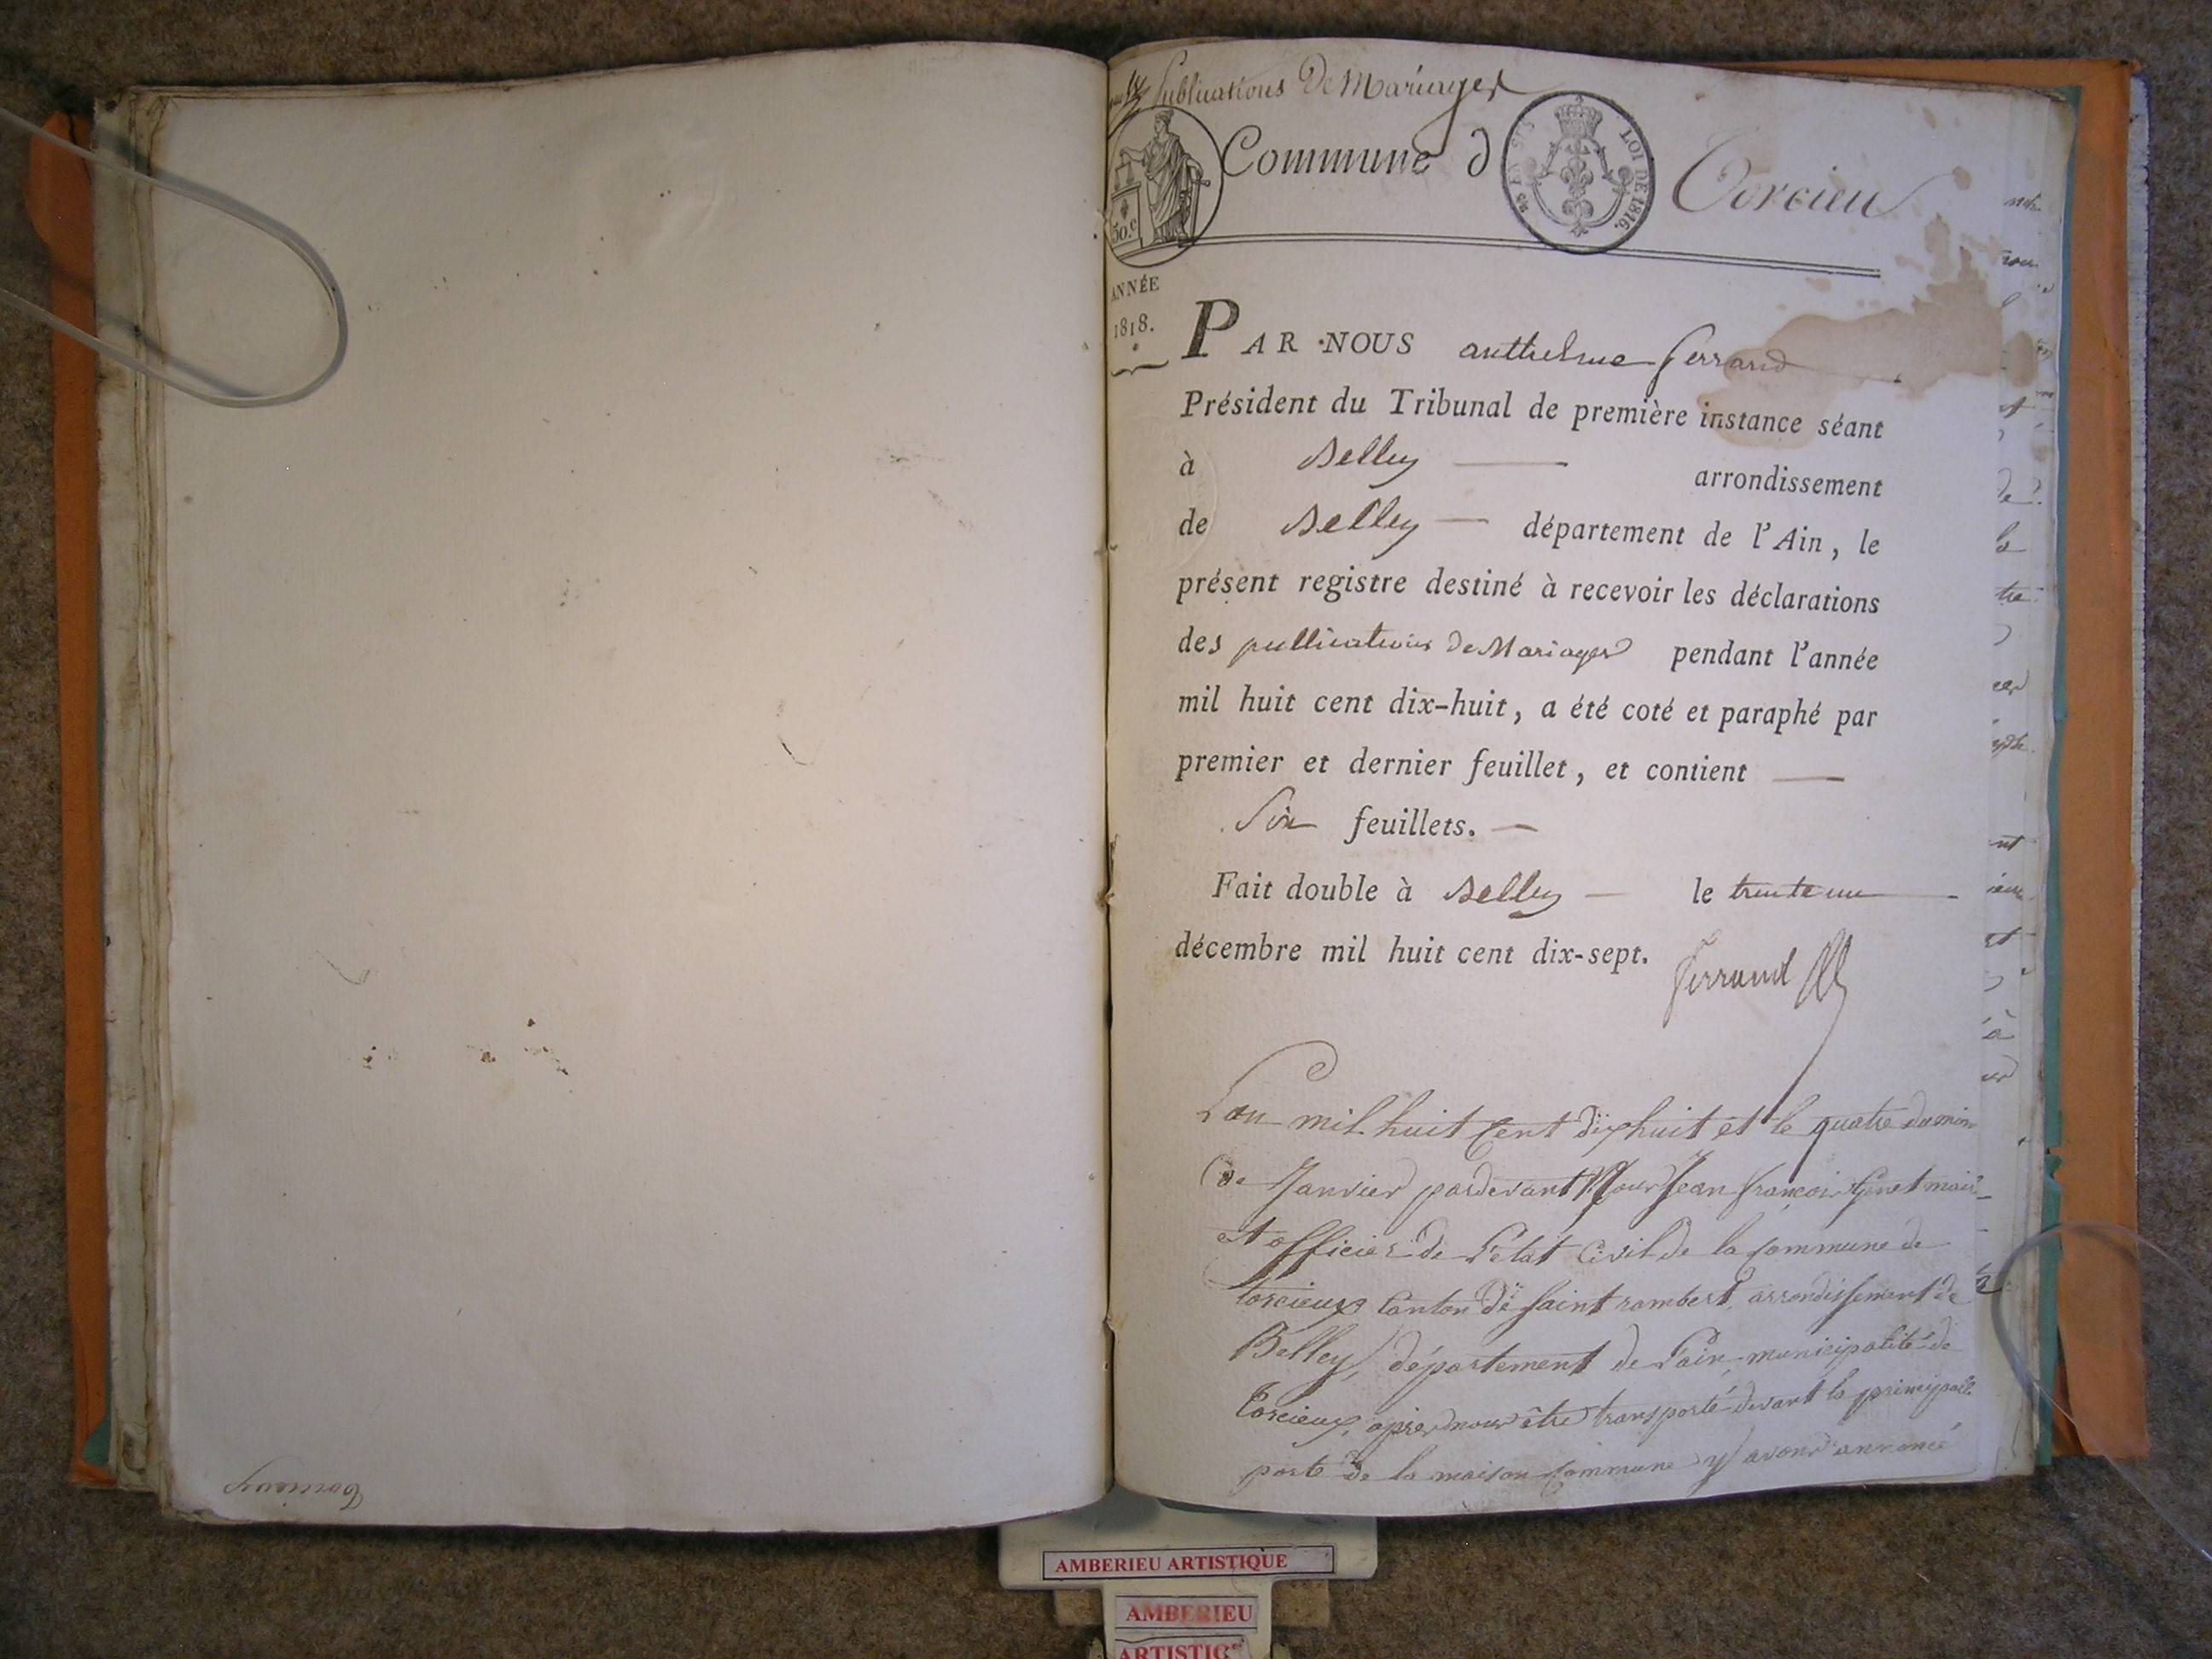 Publications De Mariages
Commune d Torcieu
50.c
LOI DE 1816.
ANNÉE
1818.
PAR NOUS anthelme ferrand
Président du Tribunal de première instance séant
à Belley arrondissement
de Belley département de l'Ain, le
présent registre destiné à recevoir les déclarations
des publications de Mariages pendant l'année
mil huit cent dix-huit, a été coté et paraphé par
premier et dernier feuillet, et contient
Six feuillets.
Fait double à Belley le trente un
décembre mil huit cent dix-sept.
ferrand
L'an mil huit Cent dixhuit et le quatre du mois
de Janvier pardevant Nous Jean françois maire
et officier de l'état Civil de la Commune de
torcieux Canton De Saint rambert, arrondissement de
Belley, département de l'ain, municipalité de
Torcieux, après nous être transporté devant la principalle
porte de la maison Commune y avons annoncé
Torcieux
AMBERIEU ARTISTIQUE
AMBERIEU
ARTISTIQ